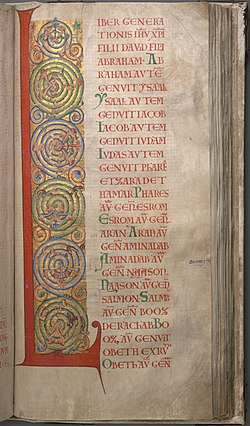 L
IBER GENERA
TIONIS IHV XPI
FILII DAVID FILII
ABRAHAM · AB
RAHAM AUTE
GENVIT YSAAC
YSAAC AUTEM
GENVIT IACOB
IACOB AUTEM
GENVIT IUDAM
IUDAS AUTEM
GENVIT PHARE
ET ZARA DE T
HAMAR PHARES
AV GEN ESROM
ESROM AV GEN
ARAN · ARAN
AV GEN AMINADAB
AMINADAB AV
GEN NAASON
NAASON AV GEN
SALMON · SALMO
AV GEN BOOZ
DE RACHAB BO
OZ AV GENVIT
OBETH EX RV
OBETH AV GEN